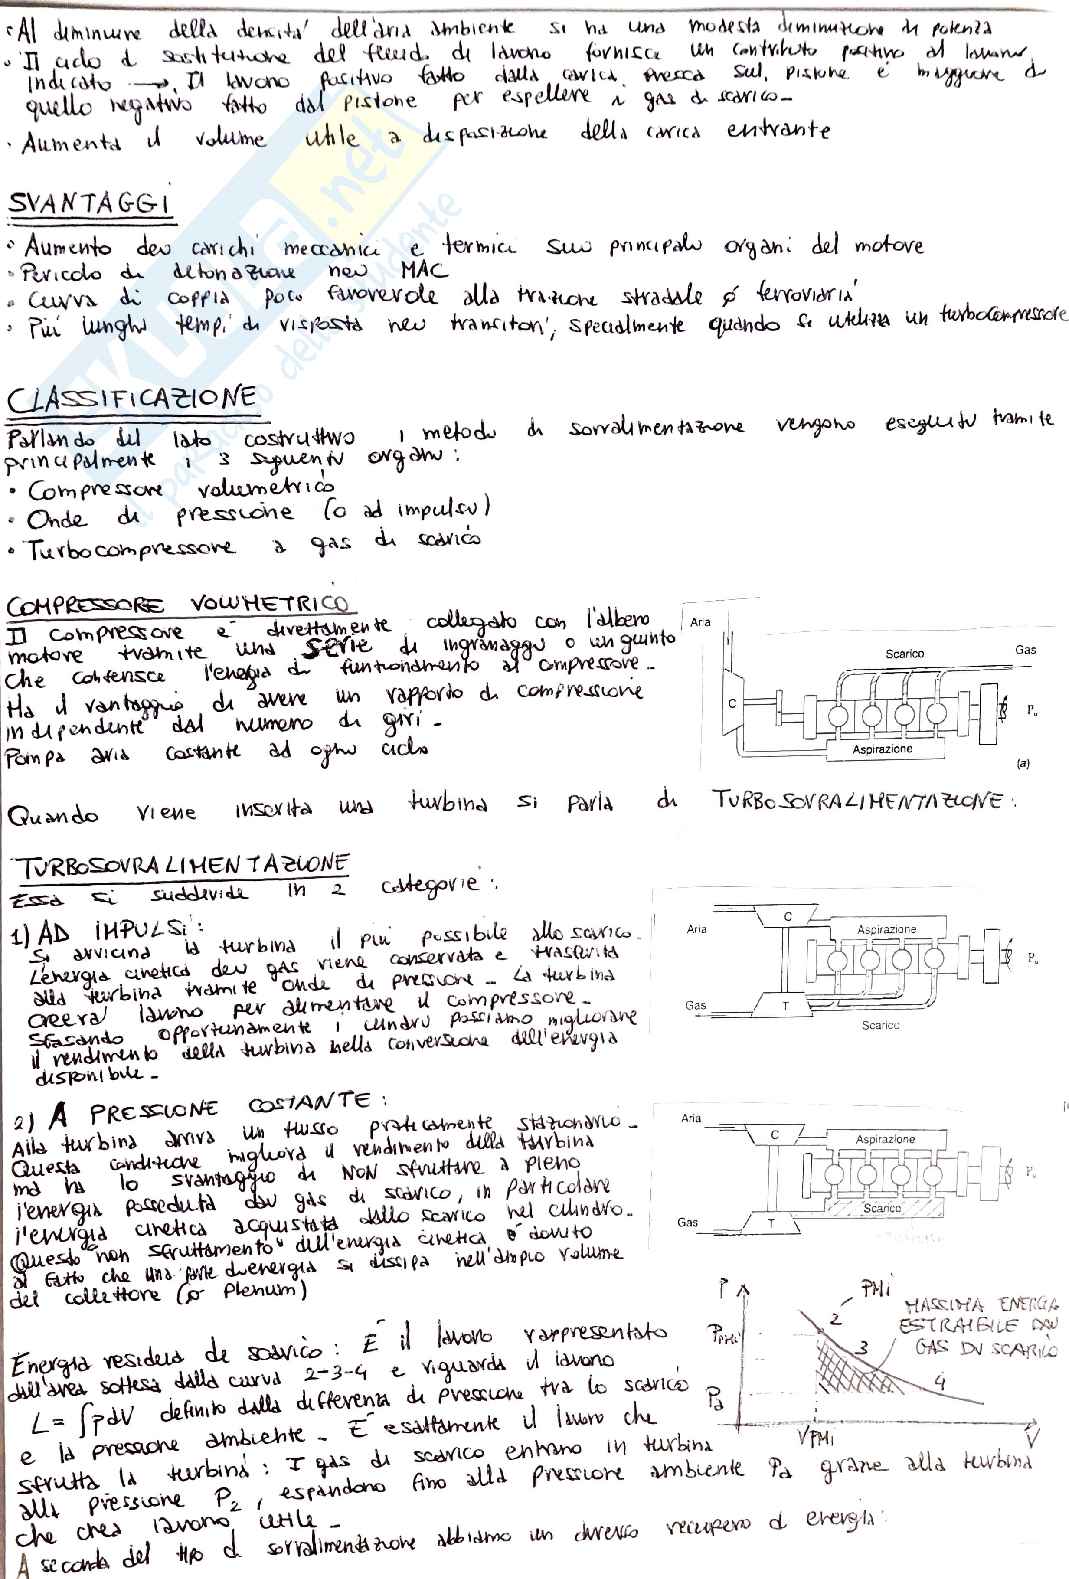 • Al diminuire della densità dell'aria ambiente si ha una modesta diminuzione di potenza
• Il ciclo di sostituzione del fluido di lavoro fornisce un contributo positivo al lavoro
indicato → Il lavoro positivo fatto dalla carica fresca sul pistone è maggiore di
quello negativo fatto dal pistone per espellere i gas di scarico-
• Aumenta il volume utile a disposizione della carica entrante
SVANTAGGI
• Aumento dei carichi meccanici e termici sui principali organi del motore
• Pericolo di detonazione nei MAC
• Curva di coppia poco favorevole alla trazione stradale o ferroviaria
• Più lunghi tempi di risposta nei transitori, specialmente quando si utilizza un turbocompressore
CLASSIFICAZIONE
Parlando del lato costruttivo i metodi di sovralimentazione vengono eseguiti tramite
principalmente i 3 seguenti organi:
• Compressore volumetrico
• Onde di pressione (o ad impulsi)
• Turbocompressore a gas di scarico
COMPRESSORE VOLUMETRICO
Il compressore è direttamente collegato con l'albero
motore tramite una serie di ingranaggi o un giunto
che conferisce l'energia di funzionamento al compressore-
Ha il vantaggio di avere un rapporto di compressione
indipendente dal numero di giri-
Pompa aria costante ad ogni ciclo
Aria
Scarico
Gas
C
Pu
Aspirazione
(a)
Quando viene inserita una turbina si parla di TURBOSOVRALIMENTAZIONE:
TURBOSOVRALIMENTAZIONE
Essa si suddivide in 2 categorie:
1) AD IMPULSI:
Si avvicina la turbina il più possibile allo scarico-
L'energia cinetica dei gas viene conservata e trasferita
alla turbina tramite onde di pressione- La turbina
creerà lavoro per alimentare il compressore-
Sfasando opportunamente i cilindri possiamo migliorare
il rendimento della turbina nella conversione dell'energia
disponibile-
C
Aria
Aspirazione
Pu
Gas
T
Scarico
2) A PRESSIONE COSTANTE:
Alla turbina arriva un flusso praticamente stazionario-
Questa condizione migliora il rendimento della turbina
ma ha lo svantaggio di NON sfruttare a pieno
l'energia posseduta dai gas di scarico, in particolare
l'energia cinetica acquistata dallo scarico nel cilindro-
Questo "non sfruttamento" dell'energia cinetica è dovuto
al fatto che una parte di energia si dissipa nell'ampio volume
del collettore (o plenum)
Aria
C
Aspirazione
Pu
Scarico
Gas
T
Energia residua de scarico: È il lavoro rappresentato
dall'area sottesa dalla curva 2-3-4 e riguarda il lavoro
L = ∫pdV definito dalla differenza di pressione tra lo scarico
e la pressione ambiente- È esattamente il lavoro che
sfrutta la turbina: I gas di scarico entrano in turbina
alla pressione P2, espandono fino alla pressione ambiente Pa grazie alla turbina
che crea lavoro utile-
A seconda del tipo di sovralimentazione abbiamo un diverso recupero di energia:
P
PMi
2
PPMi
3
MASSIMA ENERGIA
ESTRAIBILE DAI
GAS DI SCARICO
4
Pa
VPMi
V